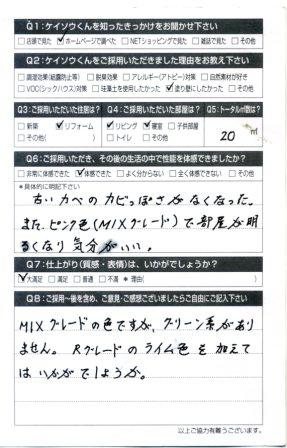 Q1：ケイソウくんを知ったきっかけをお聞かせ下さい
□店頭で見た ☑ホームページで調べた □NETショッピングで見た □雑誌で見た □その他
Q2：ケイソウくんをご採用いただきました理由をお教え下さい
□調湿効果(結露防止等) □脱臭効果 □アレルギー(アトピー)対策 □自然素材が好き
□VOC(シックハウス)対策 □珪藻土を使用したかった ☑塗り壁にしたかった □その他
Q3：ご採用いただいた住居は? Q4：ご採用いただいた部屋は? Q5：トータル㎡数は?
□新築 ☑リフォーム ☑リビング ☑寝室 □子供部屋
□その他( ) □トイレ □その他( ) 20 ㎡
Q6：ご採用いただき、その後の生活の中で性能を体感できましたか?
□非常に体感できた ☑体感できた □よく分からない □全く体感できない □その他
*具体的に明記下さい
古いカベのカビっぽさがなくなった。
また、ピンク色(MIXグレード)で部屋が明
るくなり気分がいい。
Q7：仕上がり(質感・表情)は、いかがでしょうか?
☑大満足 □満足 □普通 □不満 *理由( )
Q8：ご採用一後を含め、ご意見・ご感想ございましたらご自由にご記入下さい
MIXグレードの色ですが、グリーン系があり
ません。Rグレードのライム色を加えて
はいかがでしょうか。
以上ご協力有難うございます。